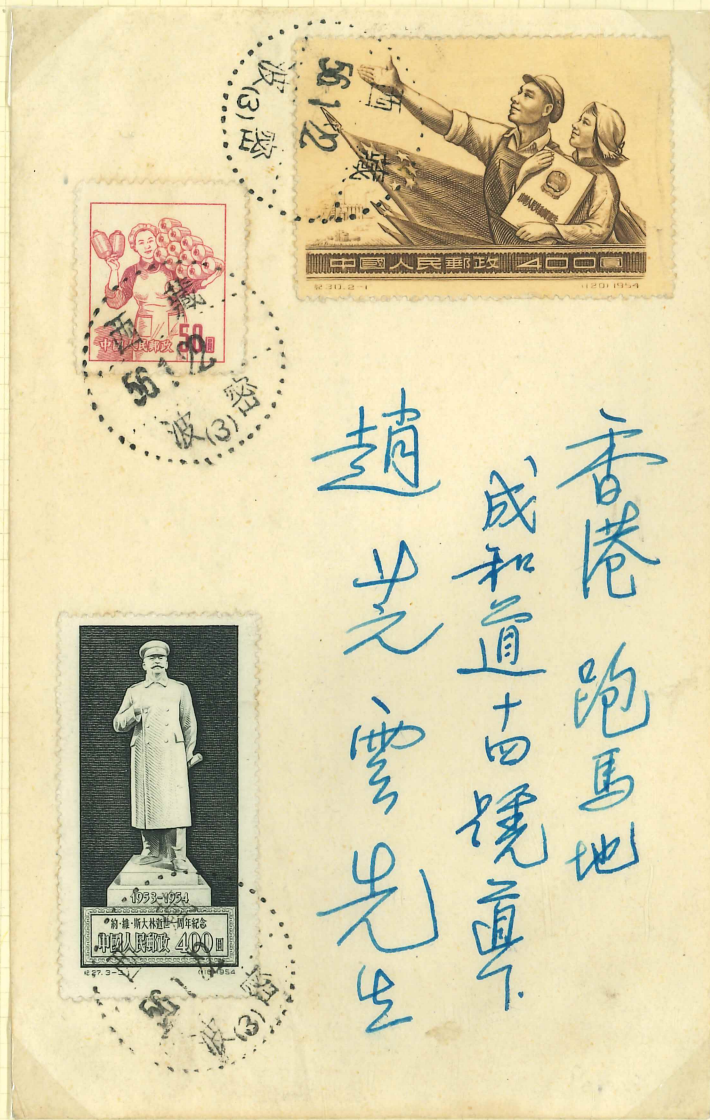 西藏
56.1.22
波(3)密
中國人民郵政 400圓
紀30.2-1
1954
中國人民郵政 50圓
西藏
56.1.22
波(3)密
香港 跑馬地
成和道十四號 下
趙 雲先生
1953-1954
約·維·斯大林逝世一周年紀念
中國人民郵政 400圓
紀27.3-
1954
西
56.1.22
波(3)密